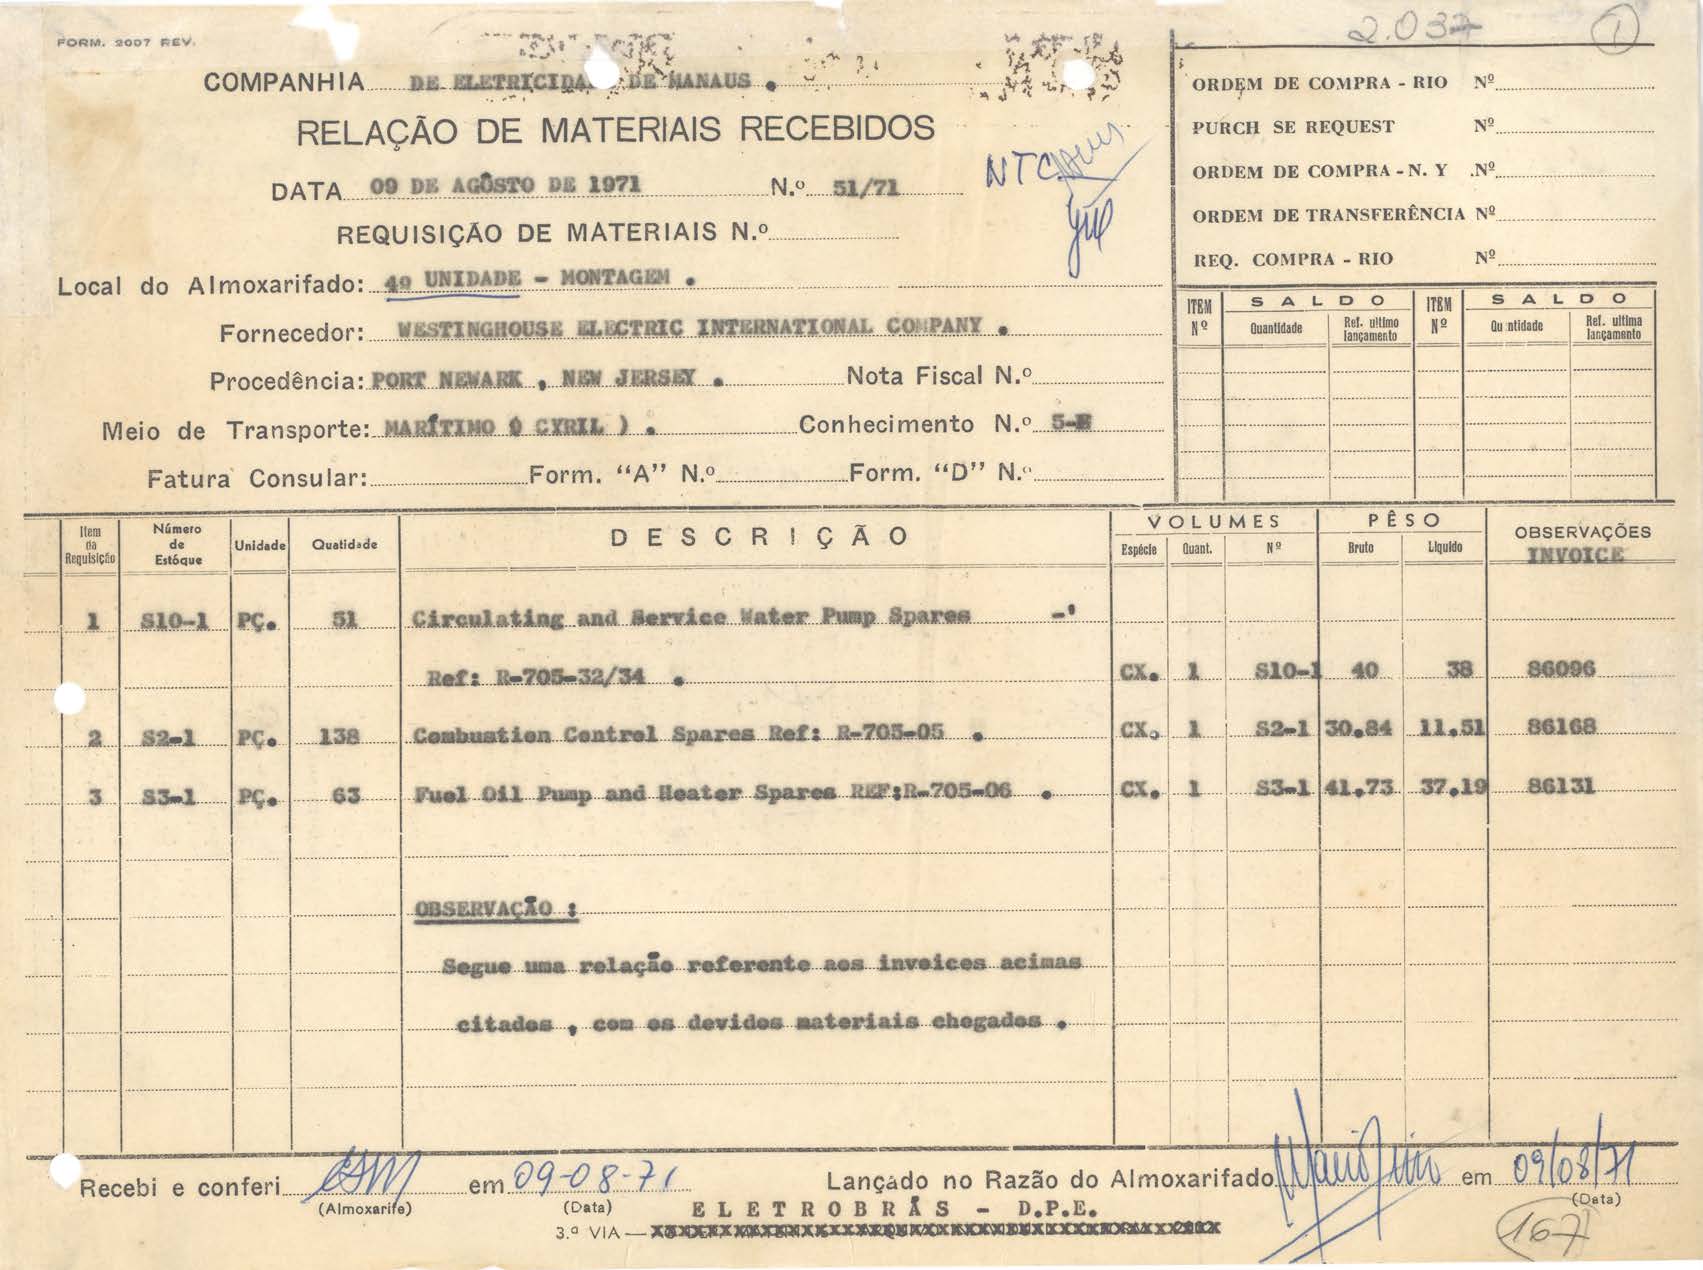 FORM. 2007 REV.
2.037 1
COMPANHIA DE ELETRICIDADE DE MANAUS .
RELAÇÃO DE MATERIAIS RECEBIDOS
DATA 09 DE AGÔSTO DE 1971 N.º 51/71
NTC
REQUISIÇÃO DE MATERIAIS N.º
Local do Almoxarifado: 4º UNIDADE - MONTAGEM .
Fornecedor: WESTINGHOUSE ELECTRIC INTERNATIONAL COMPANY .
Procedência: PORT NEWARK , NEW JERSEY . Nota Fiscal N.º
Meio de Transporte: MARÍTIMO ( CYRIL ) . Conhecimento N.º 5-E
Fatura Consular: Form. “A” N.º Form. “D” N.º
ORDEM DE COMPRA - RIO Nº
PURCH SE REQUEST Nº
ORDEM DE COMPRA - N. Y .Nº
ORDEM DE TRANSFERÊNCIA Nº
REQ. COMPRA - RIO Nº
ITEM Nº SALDO ITEM Nº SALDO
Quantidade Ref. ultimo lançamento Qu ntidade Ref. ultima lançamento
Item da Requisição Número de Estóque Unidade Quatidade DESCRIÇÃO VOLUMES PÊSO OBSERVAÇÕES
Espécie Quant. Nº Bruto Liquido INVOICE
1 S10-1 PÇ. 51 Circulating and Service Water Pump Spares -'
Ref: R-705-32/34 . CX. 1 S10-1 40 38 86096
2 S2-1 PÇ. 138 Combustion Control Spares Ref: R-705-05 . CX. 1 S2-1 30.84 11.51 86168
3 S3-1 PÇ. 63 Fuel Oil Pump and Heater Spares REF:R-705-06 . CX. 1 S3-1 41.73 37.19 86131
OBSERVAÇÃO :
Segue uma relação referente aos invoices acimas
citados , com os devidos materiais chegados .
Recebi e conferi em 09-08-71 Lançado no Razão do Almoxarifado em 09/08/71
(Almoxarife) (Data) (Data)
ELETROBRÁS - D.P.E.
3.ª VIA —
167